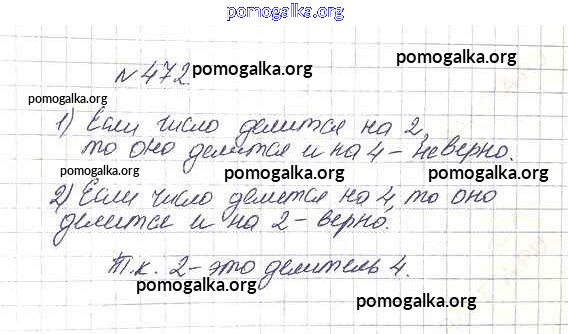 pomogalka.org
№ 472. pomogalka.org
pomogalka.org
pomogalka.org
1) Если число делится на 2,
то оно делится и на 4 - неверно.
pomogalka.org pomogalka.org pomogalka.org
2) Если число делится на 4, то оно
делится и на 2 - верно.
Т.к. 2 - это делитель 4.
pomogalka.org
pomogalka.org